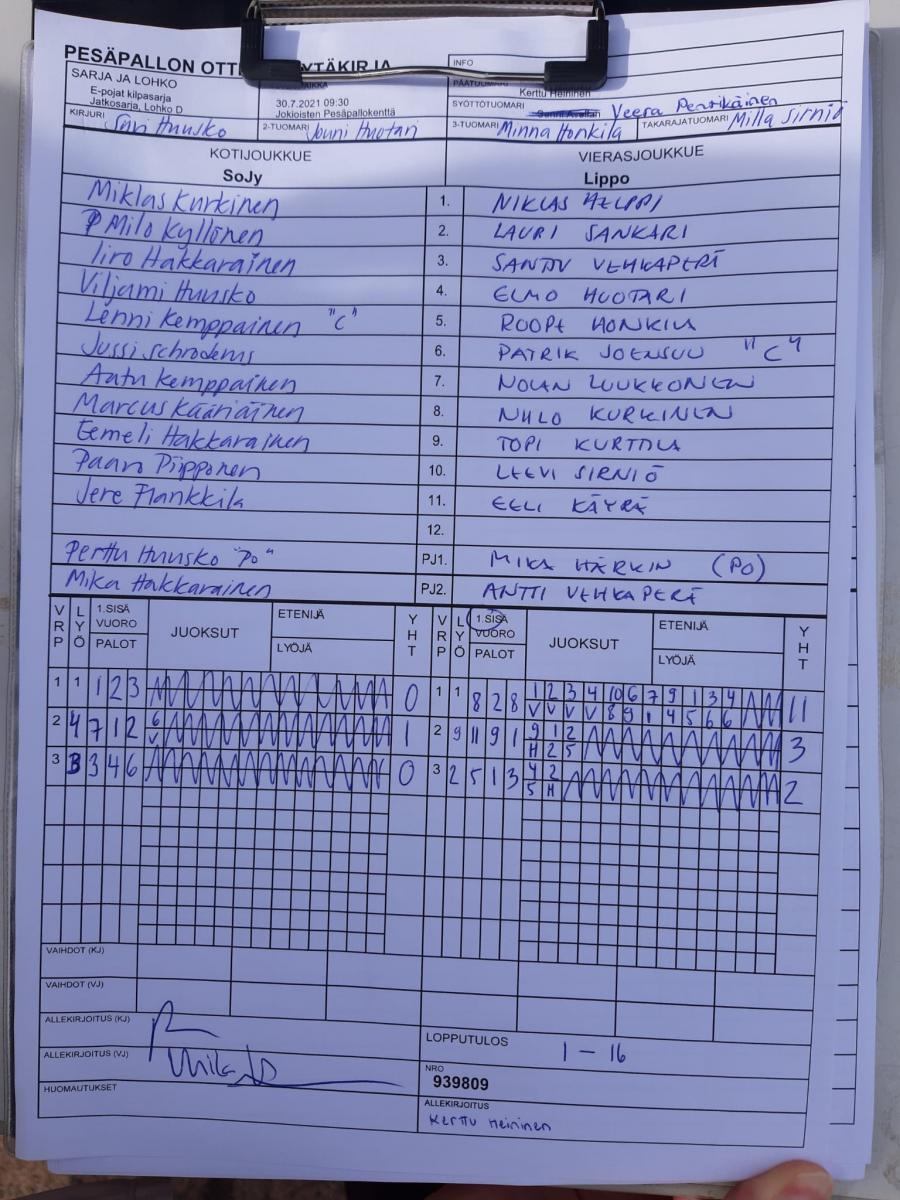 PESÄPALLON OTT YTÄKIRJA
SARJA JA LOHKO
E-pojat kilpasarja
Jatkosarja, Lohko D
30.7.2021 09:30
Jokioisten Pesäpallokenttä
INFO
PÄÄTUOMARI
Kerttu Heininen
SYÖTTÖTUOMARI Veera Pentikäinen
KIRJURI Sari Huusko
2-TUOMARI Jouni Huotari
3-TUOMARI Minna Honkila
TAKARAJATUOMARI Milla Sirniö
KOTIJOUKKUE VIERASJOUKKUE
SoJy Lippo
Miklas Kurkinen 1. NIKLAS HELPPI
Milo Kyllönen 2. LAURI SANKARI
Iiro Hakkarainen 3. SANTTU VEHKAPERÄ
Viljami Huusko 4. ELMO HUOTARI
Lenni Kemppainen "C" 5. ROOPE HONKILA
Jussi Schroderus 6. PATRIK JOENSUU "C"
Aatu Kemppainen 7. NOLAN LUUKKONEN
Marcus Kääriäinen 8. NIILO KURKINEN
Eemeli Hakkarainen 9. TOPI KURTTILA
Paavo Piipponen 10. LEEVI SIRNIÖ
Jere Flankkila 11. EELI KÄYRÄ
12.
Perttu Huusko "PO" PJ1. MIKA HÄRKIN (PO)
Mika Hakkarainen PJ2. ANTTI VEHKAPERÄ
VRP LYÖ 1.SISÄ VUORO PALOT JUOKSUT ETENIJÄ LYÖJÄ YHT VRP LYÖ 1.SISÄ VUORO PALOT JUOKSUT ETENIJÄ LYÖJÄ YHT
1 1 1 2 3 0 1 1 8 2 8 1 2 3 4 10 6 7 9 1 3 4 11
V V V V 8 9 1 4 5 6 6
2 4 7 1 2 6 1 2 9 11 9 1 9 1 2 3
V H 2 5
3 3 3 4 6 0 3 2 5 1 3 4 2 2
5 H
VAIHDOT (KJ)
VAIHDOT (VJ)
ALLEKIRJOITUS (KJ)
ALLEKIRJOITUS (VJ)
HUOMAUTUKSET
LOPPUTULOS 1 - 16
NRO
939809
ALLEKIRJOITUS
Kerttu Heininen